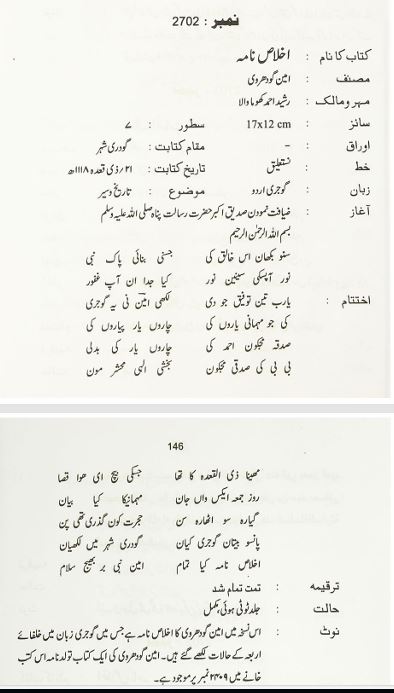 نمبر : 2702
کتاب کا نام : اخلاص نامہ
مصنف : امین گودھروی
مہر و مالک : رشید احمد کھوما والا
سائز : 17x12 cm سطور : ۷
اوراق : - مقام کتابت : گودری شہر
خط : نستعلیق تاریخ کتابت : ۲۱/ذی قعدہ ۱۱۱۸ھ
زبان : گوجری اردو موضوع : تاریخ و سیر
آغاز : ضیافت نمودن صدیق اکبر حضرت رسالت پناہ صلی اللہ علیہ وسلم
بسم اللہ الرحمٰن الرحیم
سنو بکھان اس خالق کی جسنی بنائی پاک نبی
نور آپسکی سیتین نور کیا جدا ان آپ غفور
اختتام : یارب تین توفیق جو دی لکھی امین نی یہ گوجری
کی جو مہمانی یاروں کی چاروں یار پیاروں کی
صدقہ مجکون احمد کی چاروں یار کی بدلی
بی بی کی صدقی مجکون بخشی الہی محشر مون
146
مھینا ذی القعدہ کا تھا جسکی بیچ ای ھوا قصا
روز جمعہ ایکس واں جان مہمانیکا کیا بیان
گیارہ سو اٹھارہ سن ھجرت کون گذری تھی پن
پانسو بیتان گوجری کیان گودری شہر میں لکھیان
اخلاص نامہ کیا تمام امین نبی بر بھیج سلام
ترقیمہ : تمت تمام شد
حالت : جلد ٹوٹی ہوئی، مکمل
نوٹ : اس نسخہ میں امین گودھروی کا اخلاص نامہ ہے جس میں گوجری زبان میں خلفائے
اربعہ کے حالات لکھے گئے ہیں۔ امین گودھروی کی ایک کتاب تولد نامہ اس کتب
خانے میں ۲۴۰۹ نمبر پر موجود ہے۔